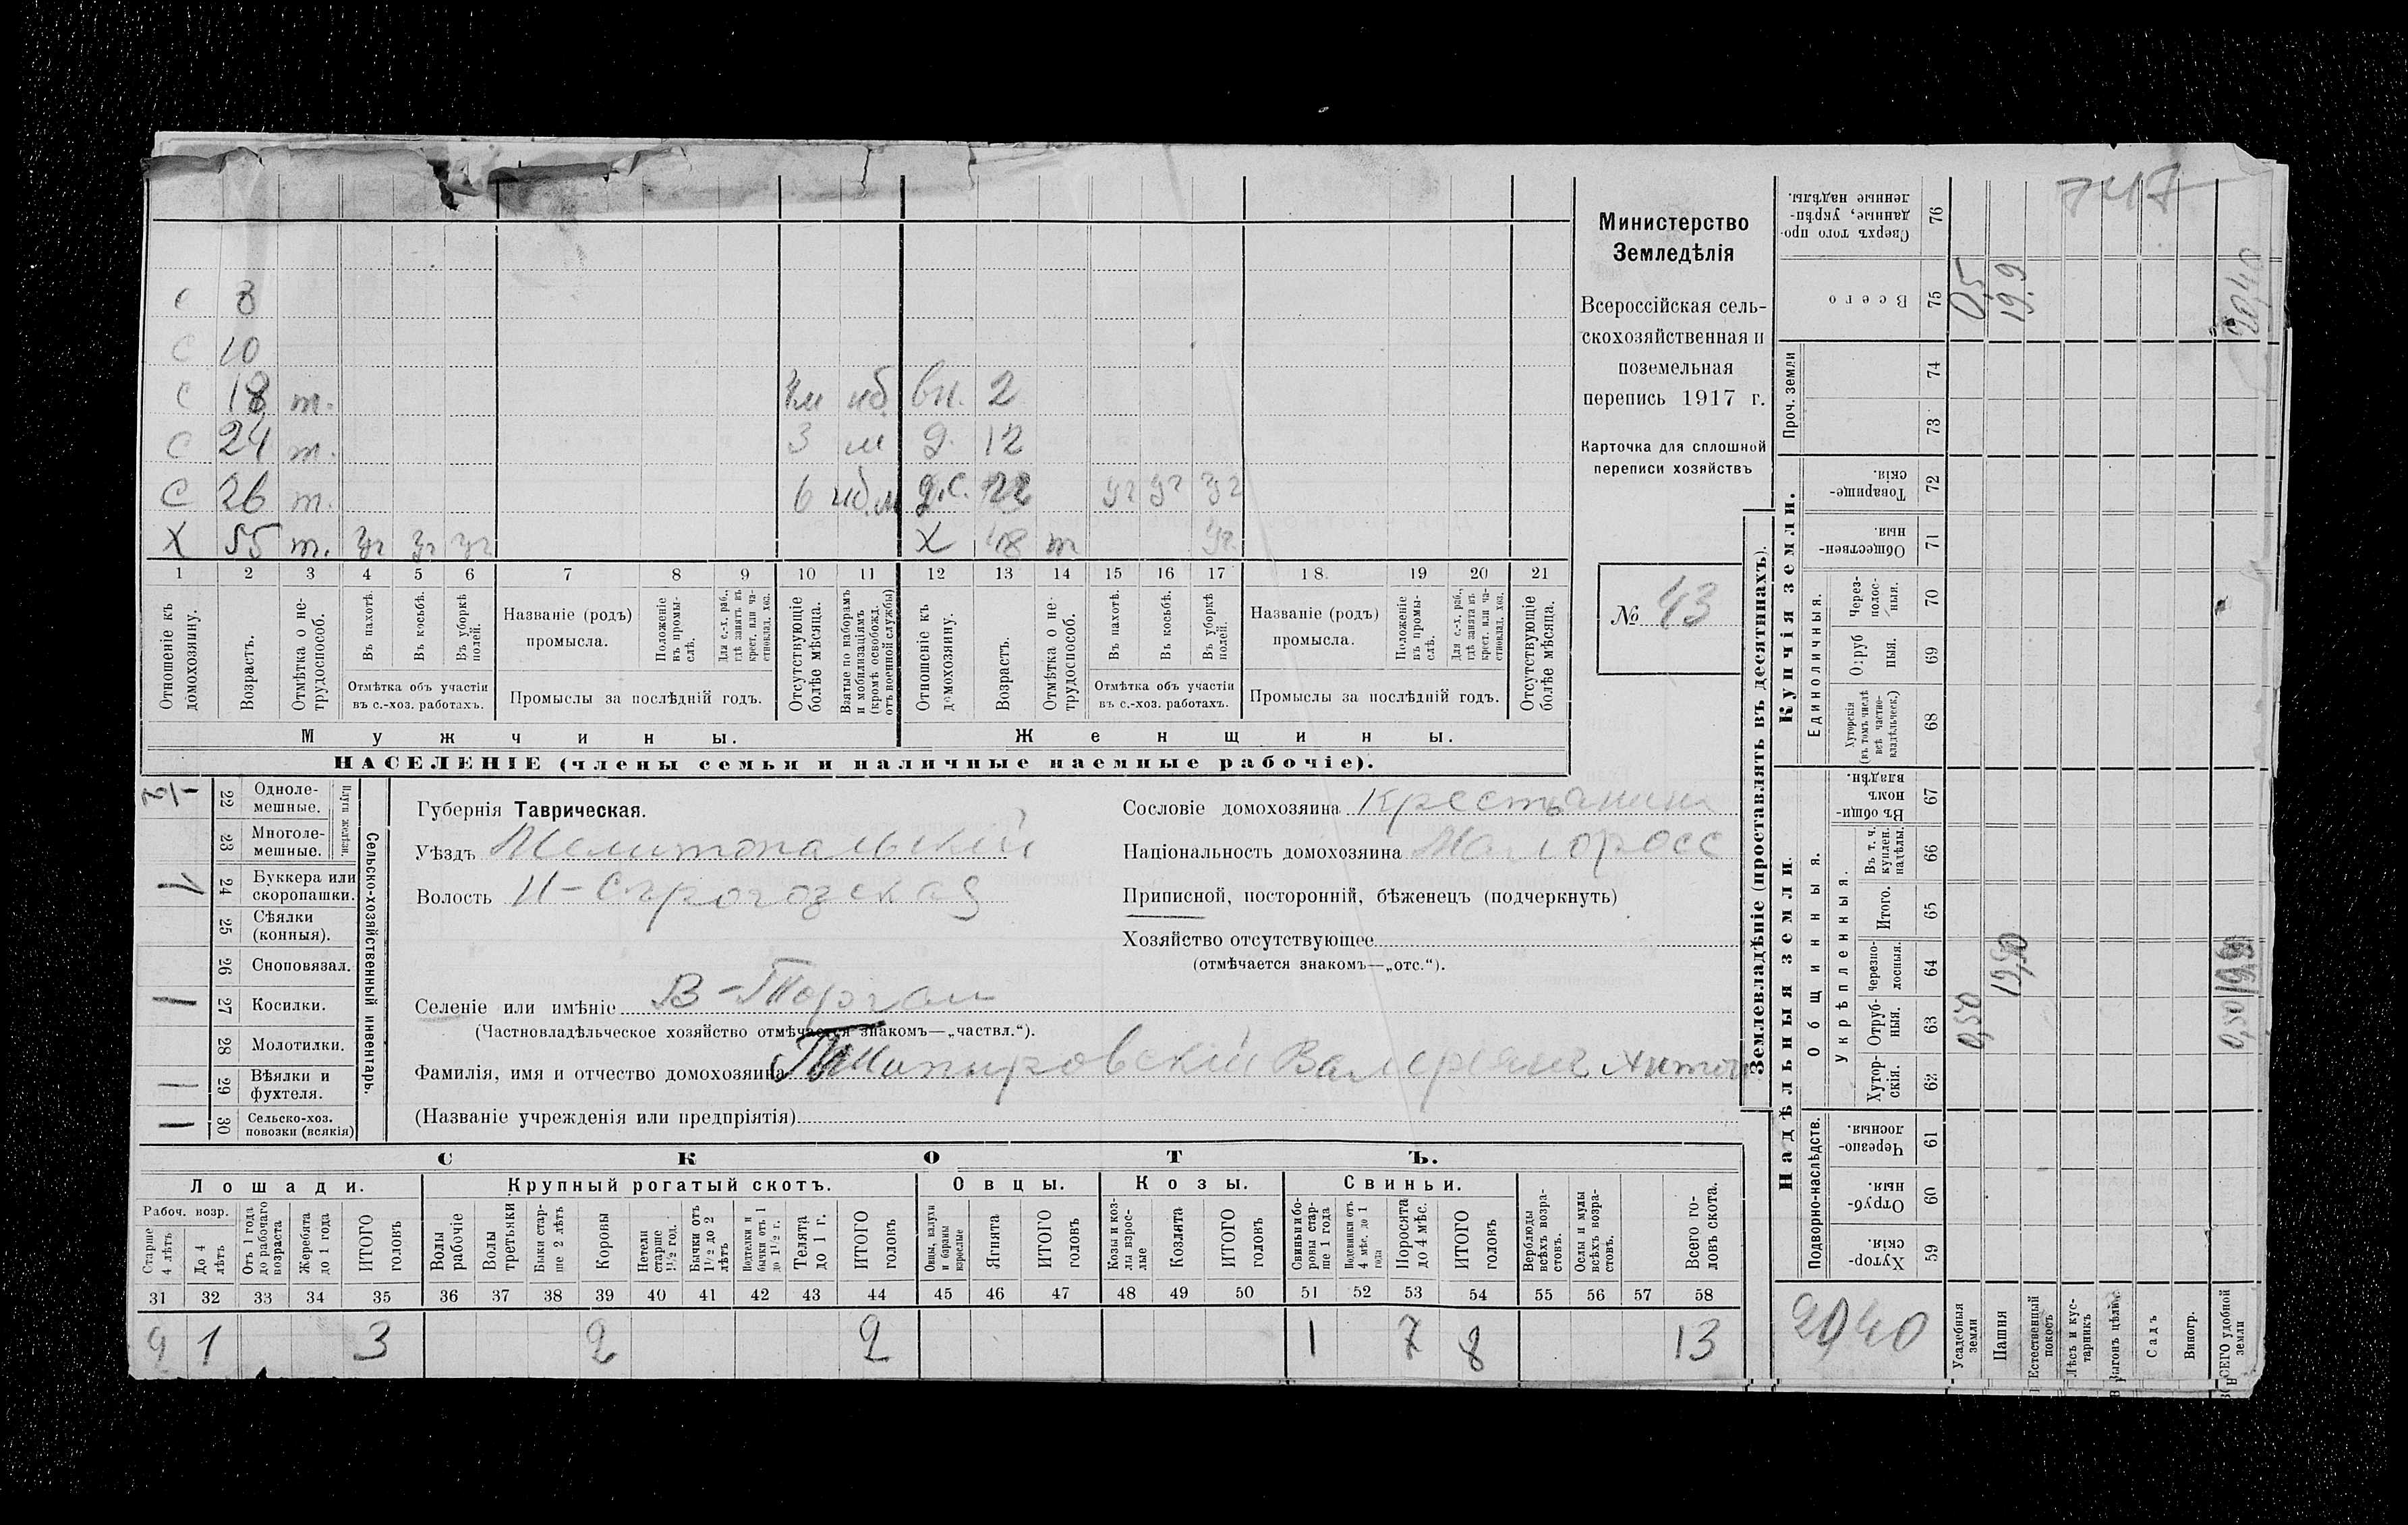 747
Министерство
Земледѣлія
Всероссійская сель-
скохозяйственная и
поземельная
перепись 1917 г.
Карточка для сплошной
переписи хозяйствъ
№ 43
С 8
С 10
С 18 т. вн. 2
С 24 т. 3 м д. 12
С 26 т. 6 д.с. 22 уг уг уг
Х 55 т. уг уг уг Х 48 т уг.
1 2 3 4 5 6 7 8 9 10 11 12 13 14 15 16 17 18. 19 20 21
Отношеніе къ домохозяину.
Возрастъ.
Отмѣтка о не-трудоспособ.
Въ пахотѣ.
Въ косьбѣ.
Въ уборкѣ полей.
Отмѣтка объ участіи
въ с.-хоз. работахъ.
Названіе (родъ)
промысла.
Положеніе въ промы-слѣ.
Для с.-х. раб., гдѣ занятъ въ крест. или ча-стновлад. хоз.
Промыслы за послѣдній годъ.
Отсутствующіе болѣе мѣсяца.
Взятые по наборамъ и мобилизаціямъ (кромѣ освобожд. отъ военной службы)
Отношеніе къ домохозяину.
Возрастъ.
Отмѣтка о не-трудоспособ.
Въ пахотѣ.
Въ косьбѣ.
Въ уборкѣ полей.
Отмѣтка объ участіи
въ с.-хоз. работахъ.
Названіе (родъ)
промысла.
Положеніе въ промы-слѣ.
Для с.-х. раб., гдѣ занята въ крест. или ча-стновлад. хоз.
Промыслы за послѣдній годъ.
Отсутствующіе болѣе мѣсяца.
Мужчины. Женщины.
НАСЕЛЕНІЕ (члены семьи и наличные наемные рабочіе).
Сельско-хозяйственный инвентарь.
Плуги желѣзн.
22 Одноле-мешные.
23 Многоле-мешные.
24 Буккера или скоропашки. 1
25 Сѣялки (конныя).
26 Сноповязал.
27 Косилки. 1
28 Молотилки.
29 Вѣялки и фухтеля. 1
30 Сельско-хоз. повозки (всякія) 1
Губернія Таврическая.
Уѣздъ Мелитопольскій
Волость Н-Сѣрогозская
Селеніе или имѣніе В-Торгаи
(Частновладѣльческое хозяйство отмѣчается знакомъ—„частвл.“).
Фамилія, имя и отчество домохозяина Валеріанъ Антон
(Названіе учрежденія или предпріятія)
Сословіе домохозяина Крестьянинъ
Національность домохозяина Малоросс
Приписной, посторонній, бѣженецъ (подчеркнуть)
Хозяйство отсутствующее
(отмѣчается знакомъ—„отс.“).
СКОТЪ.
Лошади. Крупный рогатый скотъ. Овцы. Козы. Свиньи.
Рабоч. возр.
Старше 4 лѣтъ
До 4 лѣтъ
Отъ 1 года до рабочаго возраста
Жеребята до 1 года
ИТОГО головъ
Волы рабочіе
Волы третьяки
Быки стар-ше 2 лѣтъ
Коровы
Нетели старше 1½ год.
Бычки отъ 1½ до 2 лѣтъ
Подтелки и бычки отъ 1 до 1½ г.
Телята до 1 г.
ИТОГО головъ
Овцы, валухи и бараны взрослые
Ягнята
ИТОГО головъ
Козы и коз-лы взрос-лые
Козлята
ИТОГО головъ
Свиньи и бо-ровы стар-ше 1 года
Подсвинки отъ 4 мѣс. до 1 года
Поросята до 4 мѣс.
ИТОГО головъ
Верблюды всѣхъ возра-стовъ.
Ослы и мулы всѣхъ возра-стовъ.
Всего го-ловъ скота.
31 32 33 34 35 36 37 38 39 40 41 42 43 44 45 46 47 48 49 50 51 52 53 54 55 56 57 58
2 1 3 2 2 1 7 8 13
Землевладѣніе (проставлять въ десятинахъ).
Надѣльныя земли.
Подворно-наслѣдств.
Хутор-скія. 59
Отруб-ныя. 60
Черезпо-лосныя. 61
Общинныя.
Укрѣпленныя.
Хутор-скія. 62
Отруб-ныя. 63
Черезпо-лосныя. 64
Итого. 65
Въ т. ч. куплен. надѣлы. 66
Въ общи-номъ владѣн. 67
Купчія земли.
Единоличныя.
Хуторскія (въ томъ числѣ всѣ частно-владѣльческ.) 68
Отруб ныя. 69
Через-полос-ныя. 70
Обществен-ныя. 71
Товарище-скія. 72
Проч. земли
73 74
Всего 75
Сверхъ того про-данные, укрѣп-ленные надѣлы. 76
2040
Усадебныя земли 0,50 0,5
Пашня 19,90 19,9
Естественный покосъ
Лѣсъ и кус-тарникъ
Выгонъ цѣлин.
Садъ
Виногр.
ВСЕГО удобной земли 0,50 19,90 20,40